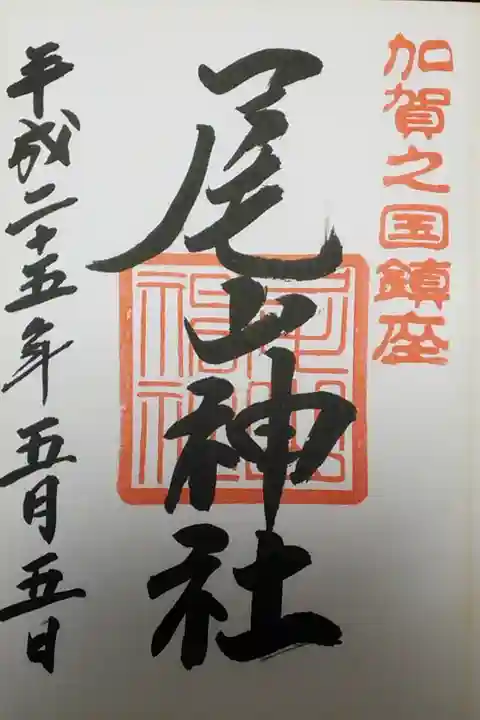 加賀之国鎮座
尾山神社
尾山神社
平成二十五年五月五日